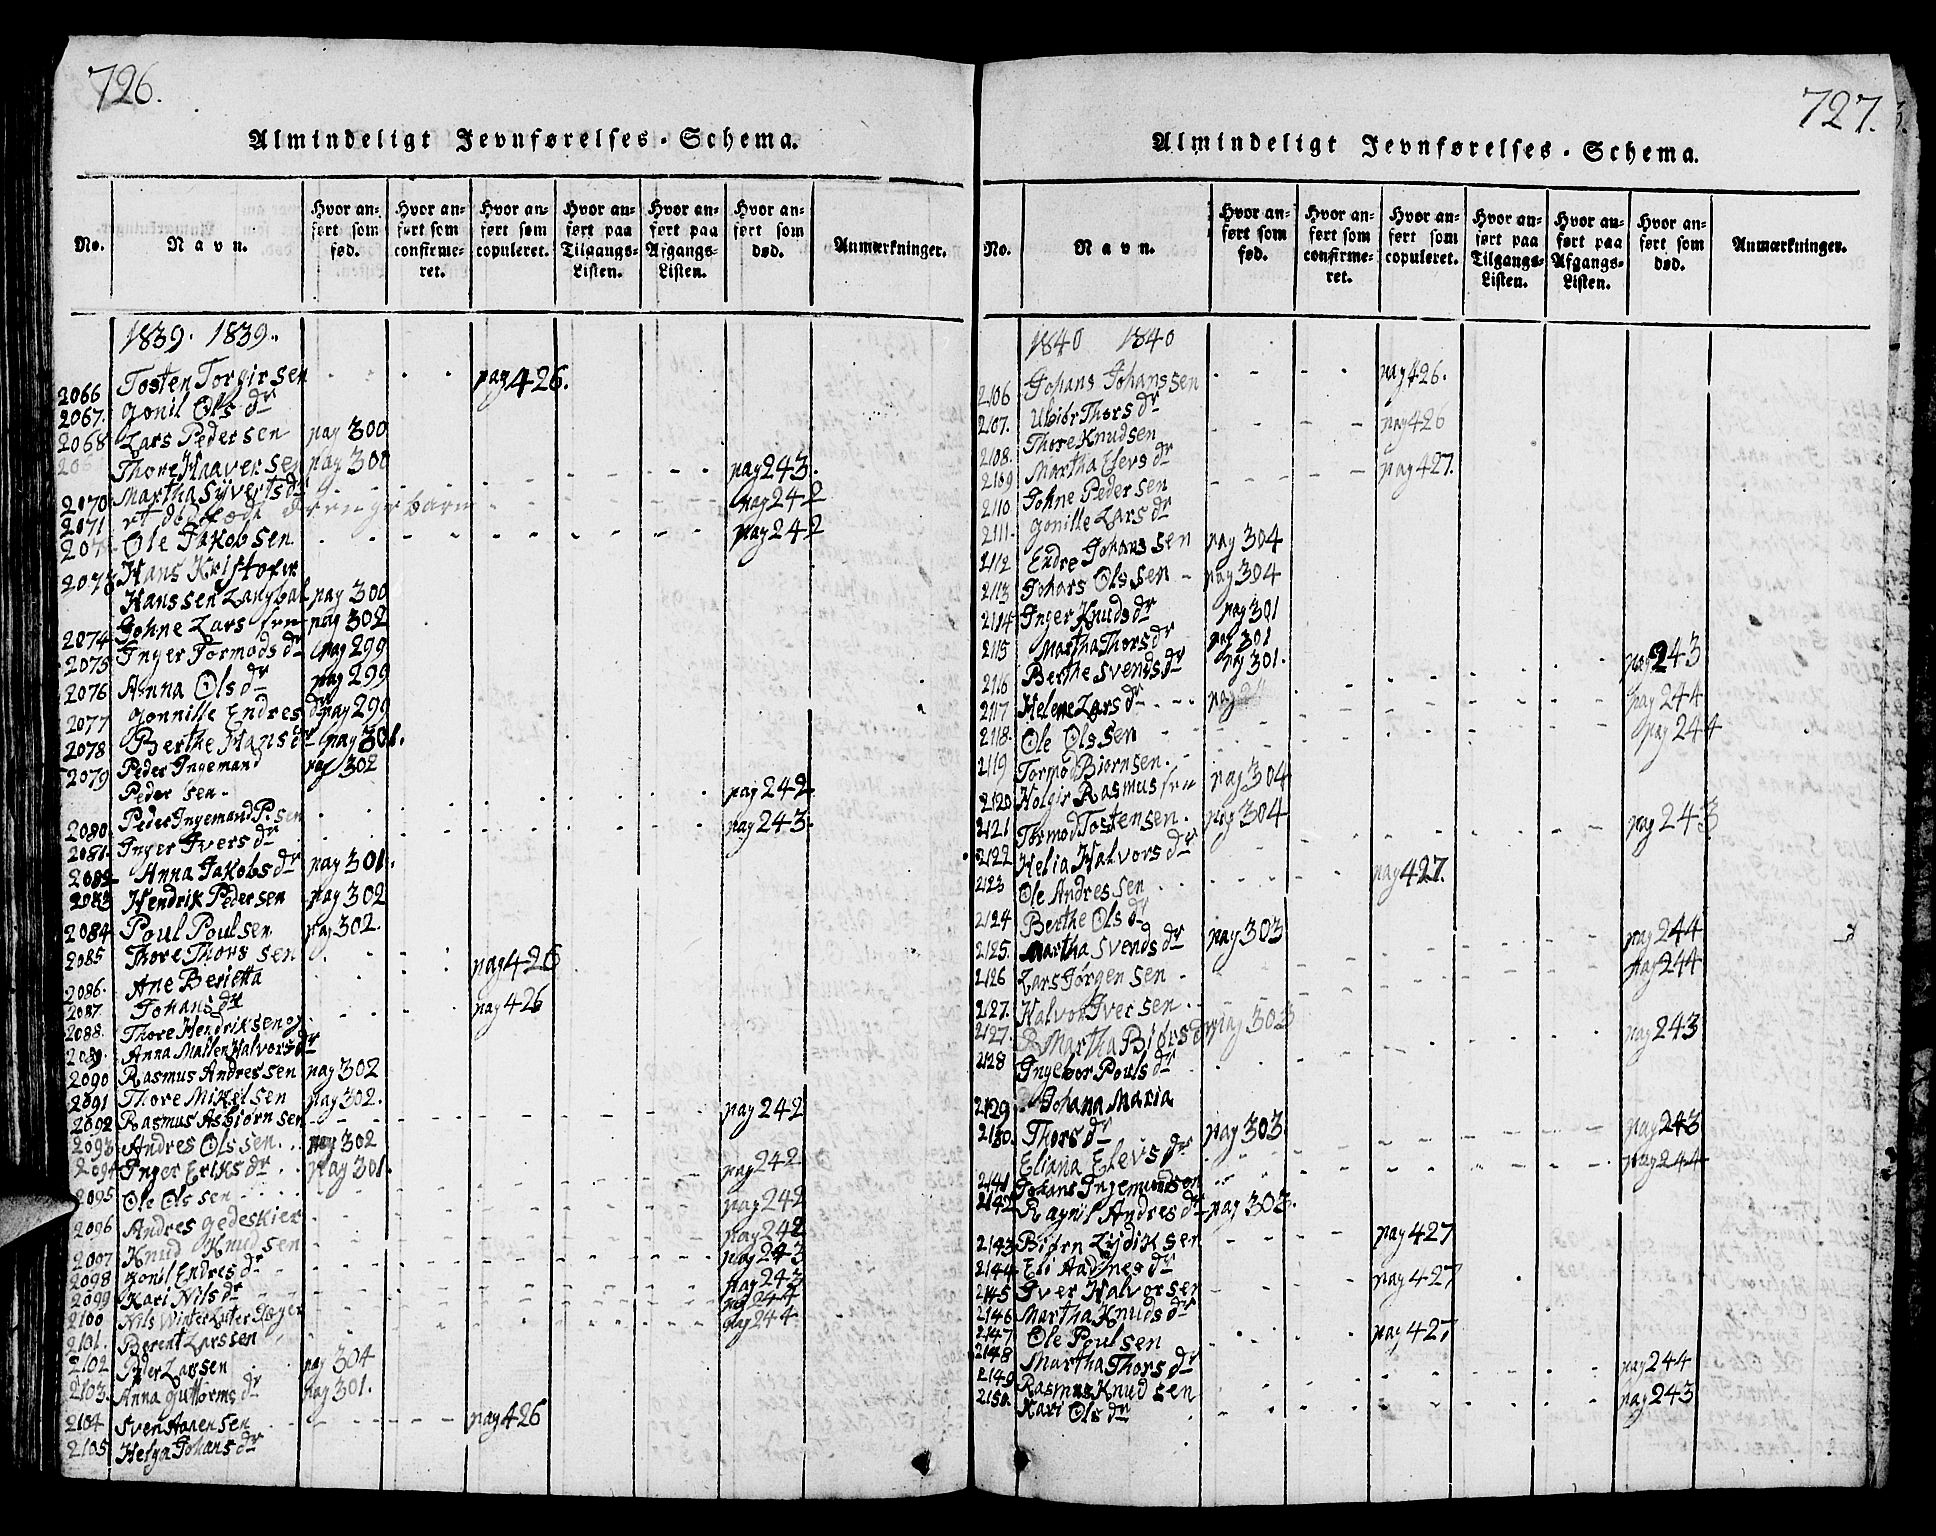 726.
Almindeligt Jevnførelses-Schema.
No. Navn. Hvor anført som fød. Hvor anført som confirmeret. Hvor anført som copuleret. Hvor anført paa Tilgangs-Listen. Hvor anført paa Afgangs-Listen. Hvor anført som død. Anmærkninger.
1839. 1839.
2066 Tosten Torgirsen pag 426.
2067. Gonil Ols dr
2068 Lars Pedersen pag 300
206 Thore Haaversen pag 300
2070 Martha Syverts dr pag 243.
2071 et dødfødt drengebarn pag 242
207 Ole Jakobsen pag 242
2073 Hans Kristofer
Hanssen Langbal pag 300
2074 Johne Lars sen pag 302
2075 Inger Tormods dr pag 299
2076 Anna Ols dr pag 299
2077 Gonnille Endres dr pag 299
2078 Berthe Hans dr pag 301.
2079 Peder Ingemand pag 302
Peder sen.
2080 Peder Ingemand P. sen pag 242
2081 Inger Ivers dr pag 243.
2082 Anna Jakobs dr pag 301.
2083 Hendrik Pedersen pag 302
2084 Poul Poulsen pag 302.
2085 Thore Thorssen pag 426
2086. Ane Beritha
2087. Johans dr pag 426
2088. Thore Hendriksen og
Anna Mallen Halvors dr
2090 Rasmus Andressen pag 302
2091 Thore Mikelsen pag 302.
2092 Rasmus Asbjørnsen pag 242
2093 Andres Olssen pag 302
2094 Inger Eriks dr pag 301.
2095 Ole Olssen pag 242
2096 Andres Gedeskier pag 242
2097 Knud Knudsen pag 242
2098 Gonil Endres dr pag 243
2099 Kari Nils dr pag 243
2100 Nils Winter pag 244
2101. Berent Larssen pag 244
2102 Peder Larsen pag 304
2103. Anna Guttorms dr pag 301.
2104 Sven Aanensen pag 426
2105 Helga Johans dr
727.
Almindeligt Jevnførelses-Schema.
No. Navn. Hvor anført som fød. Hvor anført som confirmeret. Hvor anført som copuleret. Hvor anført paa Tilgangs-Listen. Hvor anført paa Afgangs-Listen. Hvor anført som død. Anmærkninger.
1840 1840
2106 Johans Johanssen pag 426.
2107. Thors dr
2108. Thore Knudsen pag 426
2109 Martha Elevs dr
2110 Johne Pedersen pag 427.
2111. Gonille Lars dr
2112 Endre Johanssen pag 304
2113 Johans Olssen pag 304
2114 Inger Knuds dr pag 301
2115 Martha Thors dr pag 301
2116 Berthe Svends dr pag 301.
2117 Helene Lars dr pag 243
2118. Ole Olssen pag 244
2119 Tormod Biørnsen. pag 244
2120 Holgir Rasmussen pag 304
2121 Tormod Tostensen. pag 304
2122 Helia Halvors dr pag 243
2123 Ole Andressen pag 427.
2124 Berthe Ols dr
2125. Martha Svends dr pag 303
2126 Lars Jørgensen pag 244
2127. Halvor Iversen pag 244
2127. Martha Biørs dr pag 303
2128 Ingebor Pouls dr pag 243
2129 Johana Maria
2130. Thors dr pag 303
Eliana Elevs dr pag 243
2141 Johans Ingemundsen pag 244
2142 Ragnil Andres dr pag 303.
2143 Biørn Lydiksen pag 427
2144 Eli Aadnes dr
2145 Iver Halvorsen pag 427
2146 Martha Knuds dr
2147 Ole Poulsen pag 427
2148 Martha Thors dr
2149 Rasmus Knudsen pag 244
2150. Kari Ols dr pag 243